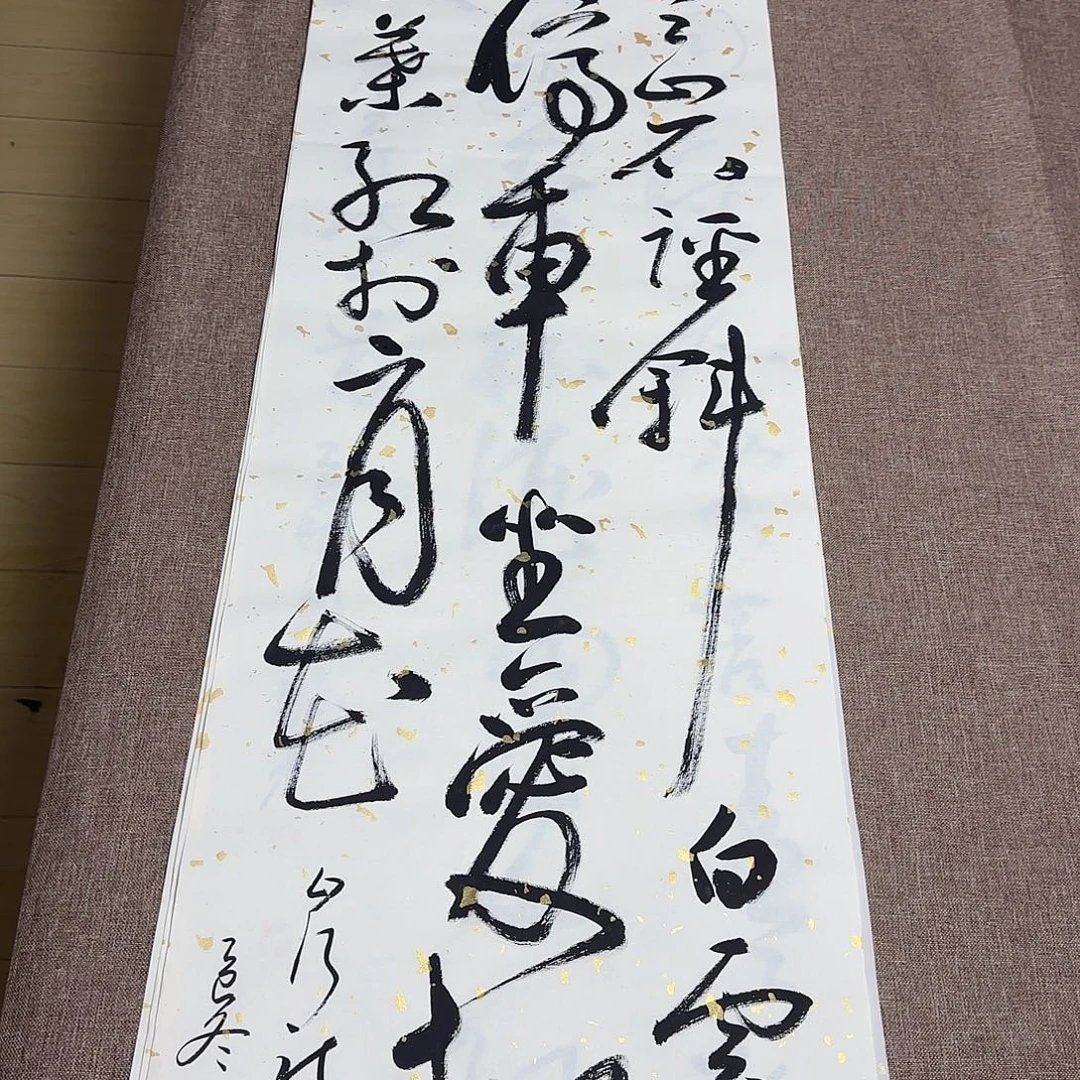 山石徑斜白雲
停車坐愛
葉紅於二月花山行
冬